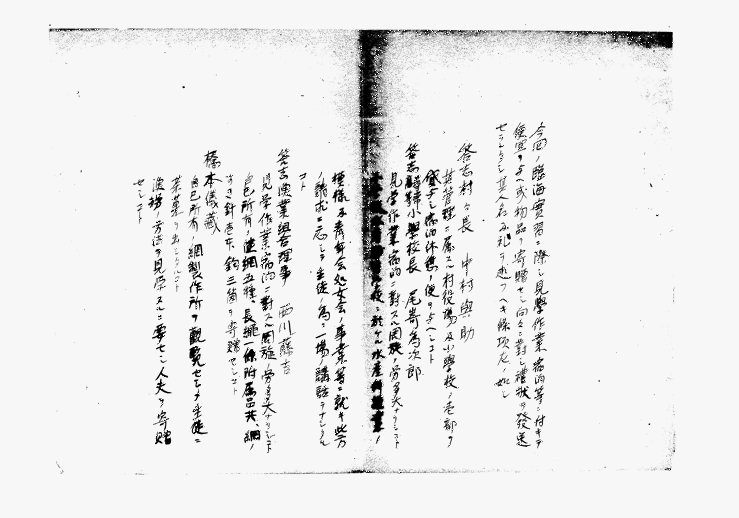 今回ノ臨海實習ニ際シ見學作業宿泊等ニ付キテ
便宜ヲ与ヘ或物品ヲ寄贈セシ向々ニ對シ禮状ヲ發送
セシ
答志村々長 中村與助
其管理ニ属スル村役場及小學校ノ壱部ヲ
貸与シ宿泊休憩ノ便ヲ与ヘシコト
答志尋常小學校長 尾崎為次郎
見学作業宿泊ニ對スル周旋ノ労多大ナリシコト
ニ於ケル水産科授業ノ
模様及青年会処女会ノ事業等ニ就キ此方
ノ請求ニ応シテ生徒ノ為ニ一場ノ講話ヲナシタル
コト
答志漁業組合理事 西川藤吉
見学作業宿泊ニ對スル周旋ノ労多大ナリシコト
自己所有ノ網五種、長縄一條附属品共、網ノ
針壱本 鈎三箇ヲ寄贈セシコト
橋本儀藏
自己所有ノ網製作所ヲ觀覧セシメ生徒ニ
茶菓ヲ出シタルコト
漁撈ノ方法ヲ見学スルニ要セシ人夫ヲ寄贈
セシコト